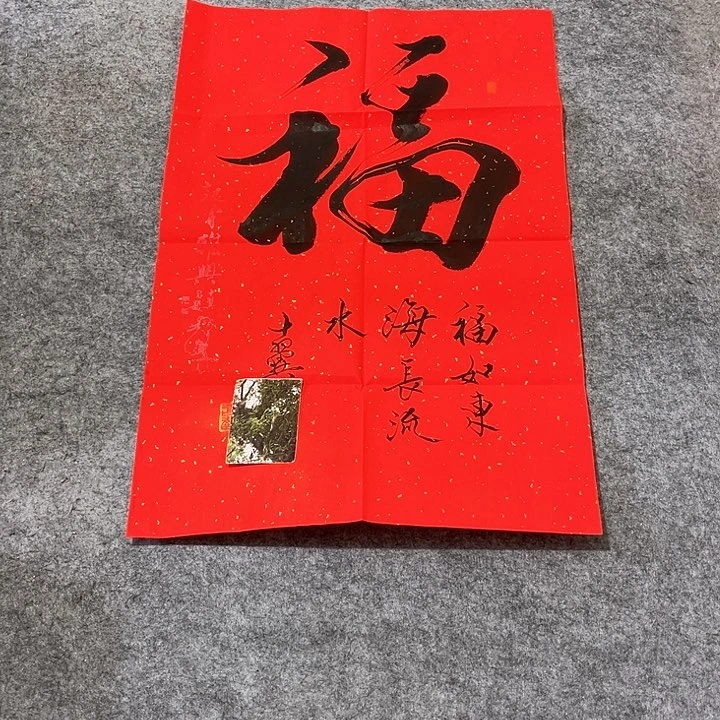 福
福如東
海長流
水
十翼